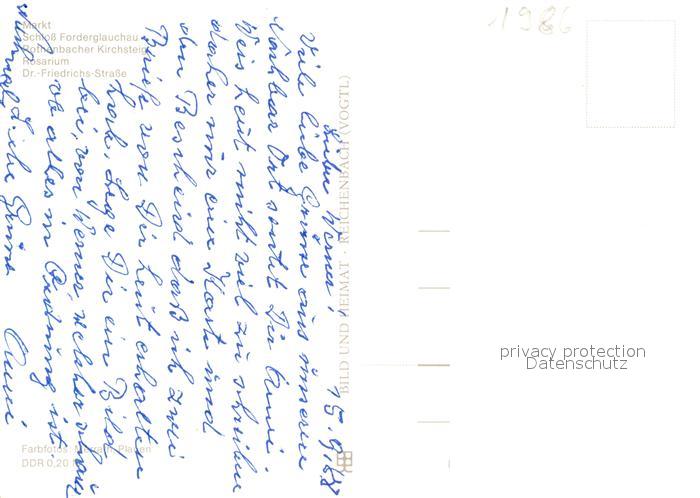 Markt
Schloß Forderglauchau
Rothenbacher Kirchsteig
Rosarium
Dr.-Friedrichs-Straße
1986
15.9.88
Liebe Werner!
Viele liebe Grüße aus unseren
Ort sendet Dir Anni.
Weis heut nicht viel zu schreiben
daher nur eine Karte und
den Bescheid daß ich zwei
Briefe von Dir heut erhalten
hab, lege Dir ein Bild
bei, von Werner, welcher
ob alles in Ordnung ist.
Liebe Grüße Anni
BILD UND HEIMAT · REICHENBACH (VOGTL)
Farbfotos: Plauen
DDR 0,20 M
privacy protection
Datenschutz